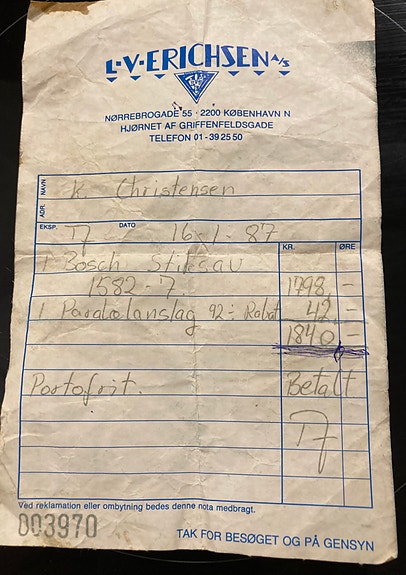 L·V·ERICHSEN A/S
NØRREBROGADE 55 · 2200 KØBENHAVN N
HJØRNET AF GRIFFENFELDSGADE
TELEFON 01 - 39 25 50
NAVN K. Christensen
ADR.
EKSP. DATO 16-1-87 KR. ØRE
1 Bosch Stiksav
1582-7. 1798,-
1 Parallelanslag 92 ÷ Rabat 42,-
1840,-
Portofrit. Betalt
Ved reklamation eller ombytning bedes denne nota medbragt.
003970 TAK FOR BESØGET OG PÅ GENSYN